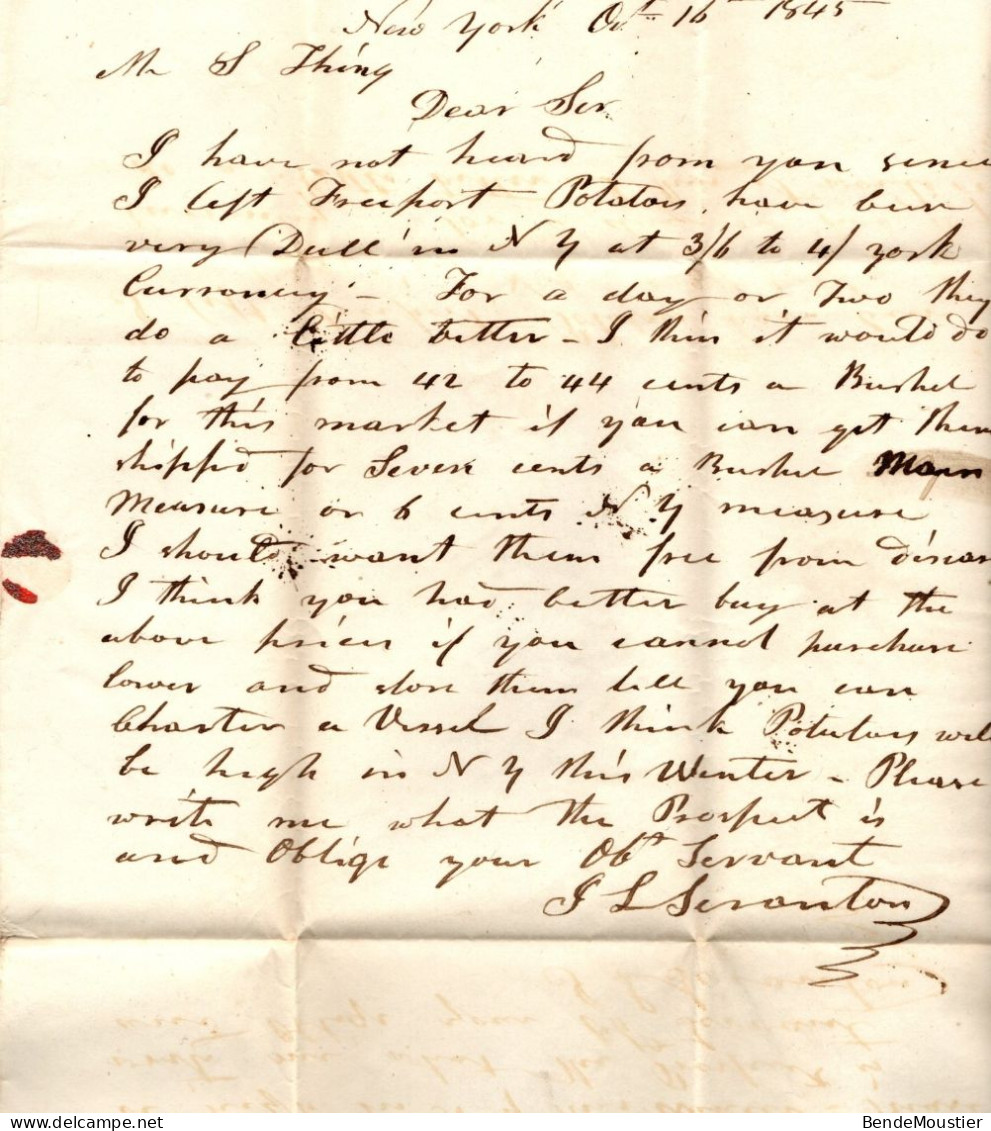 New York Oct 16th 1845
Mr S Thing
Dear Sir
I have not heard from you since
I left Freeport Potatoes have been
very Dull in N Y at 3/6 to 4/ york
Curroncy - For a day or Two they
do a little better - I think it would do
to pay from 42 to 44 cents a Bushel
for this market if you can get them
shippd for Seven cents a Bushel Main
Measure or 6 cents N Y measure
I should want them free from diseas
I think you had better buy at the
above prices if you cannot purchase
lower and store them till you can
Charter a Vessel I think Potatoes will
be high in N Y this Winter - Please
write me what the Prospect is
and Oblige your Obt Servant
J L Scranton
BendeMoustier